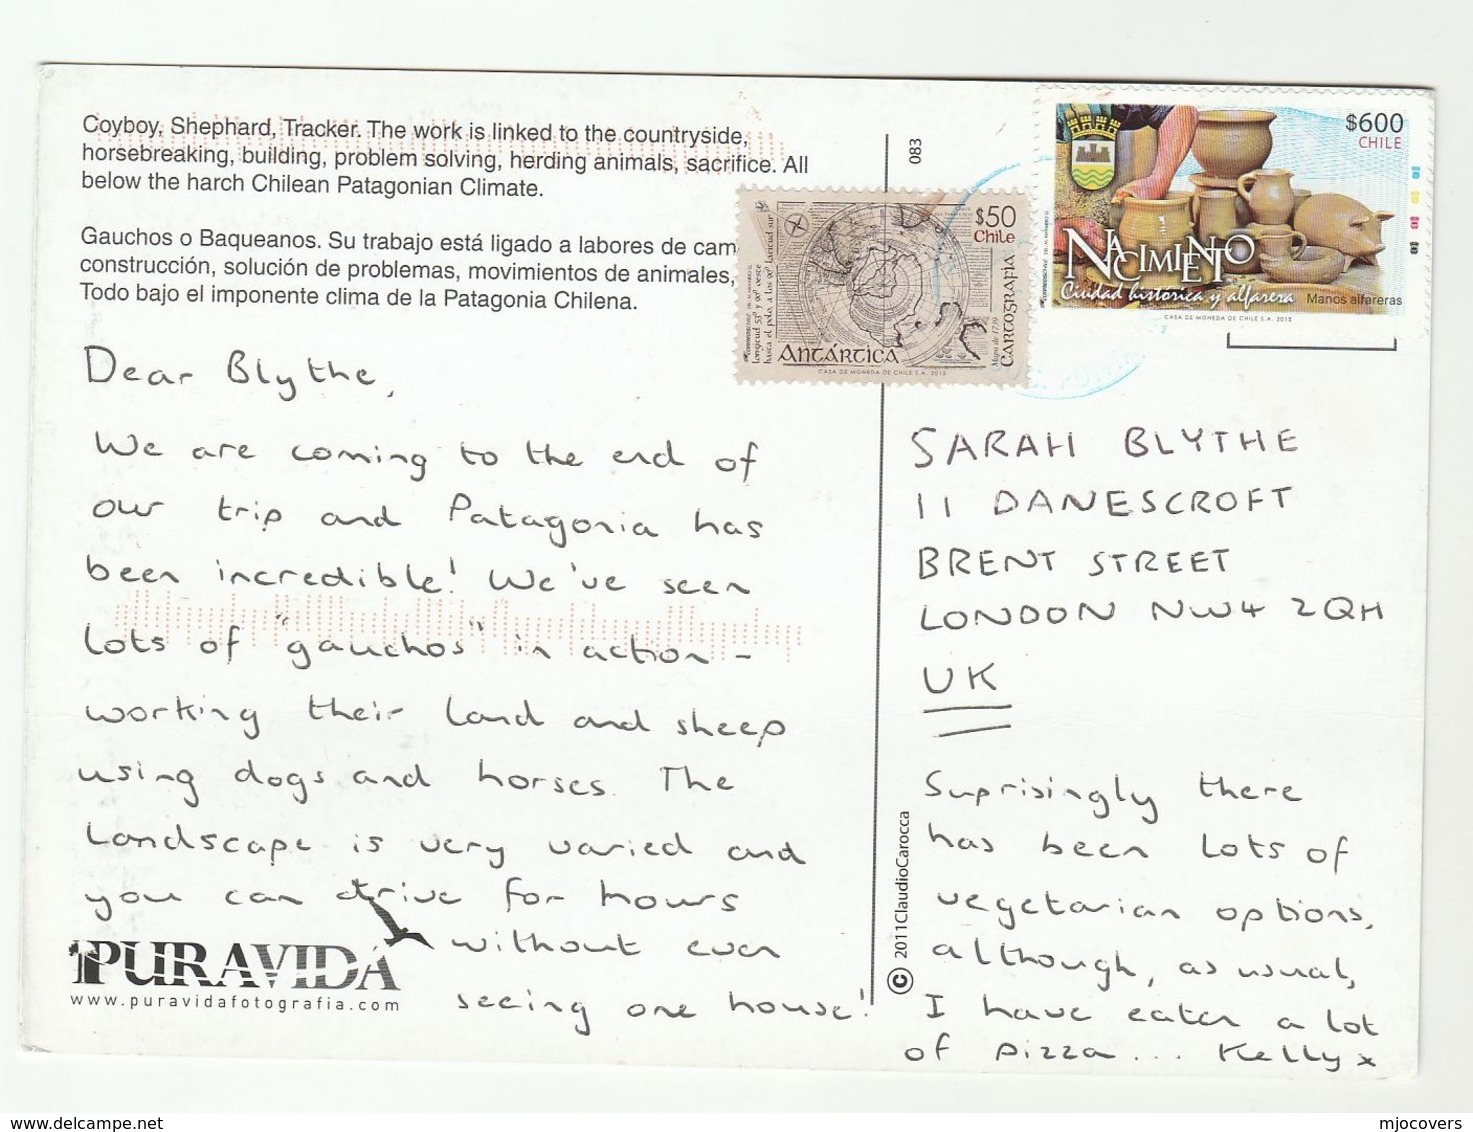 Coyboy, Shephard, Tracker. The work is linked to the countryside,
horsebreaking, building, problem solving, herding animals, sacrifice. All
below the harch Chilean Patagonian Climate.
Gauchos o Baqueanos. Su trabajo está ligado a labores de cam
construcción, solución de problemas, movimientos de animales,
Todo bajo el imponente clima de la Patagonia Chilena.
083
$50
Chile
ANTÁRTICA
CARTOGRAFIA
Mapa de 1739
CASA DE MONEDA DE CHILE S.A. 2015
$600
CHILE
NACIMIENTO
Ciudad histórica y alfarera
Manos alfareras
CASA DE MONEDA DE CHILE S.A. 2015
Dear Blythe,
We are coming to the end of
our trip and Patagonia has
been incredible! We've seen
lots of "gauchos" in action -
working their land and sheep
using dogs and horses. The
landscape is very varied and
you can drive for hours
without even
seeing one house!
PURAVIDA
www.puravidafotografia.com
© 2011ClaudioCarocca
SARAH BLYTHE
11 DANESCROFT
BRENT STREET
LONDON NW4 2QH
UK
Suprisingly there
has been lots of
vegetarian options,
although, as usual,
I have eaten a lot
of pizza... Kelly x
www.delcampe.net
mjocovers